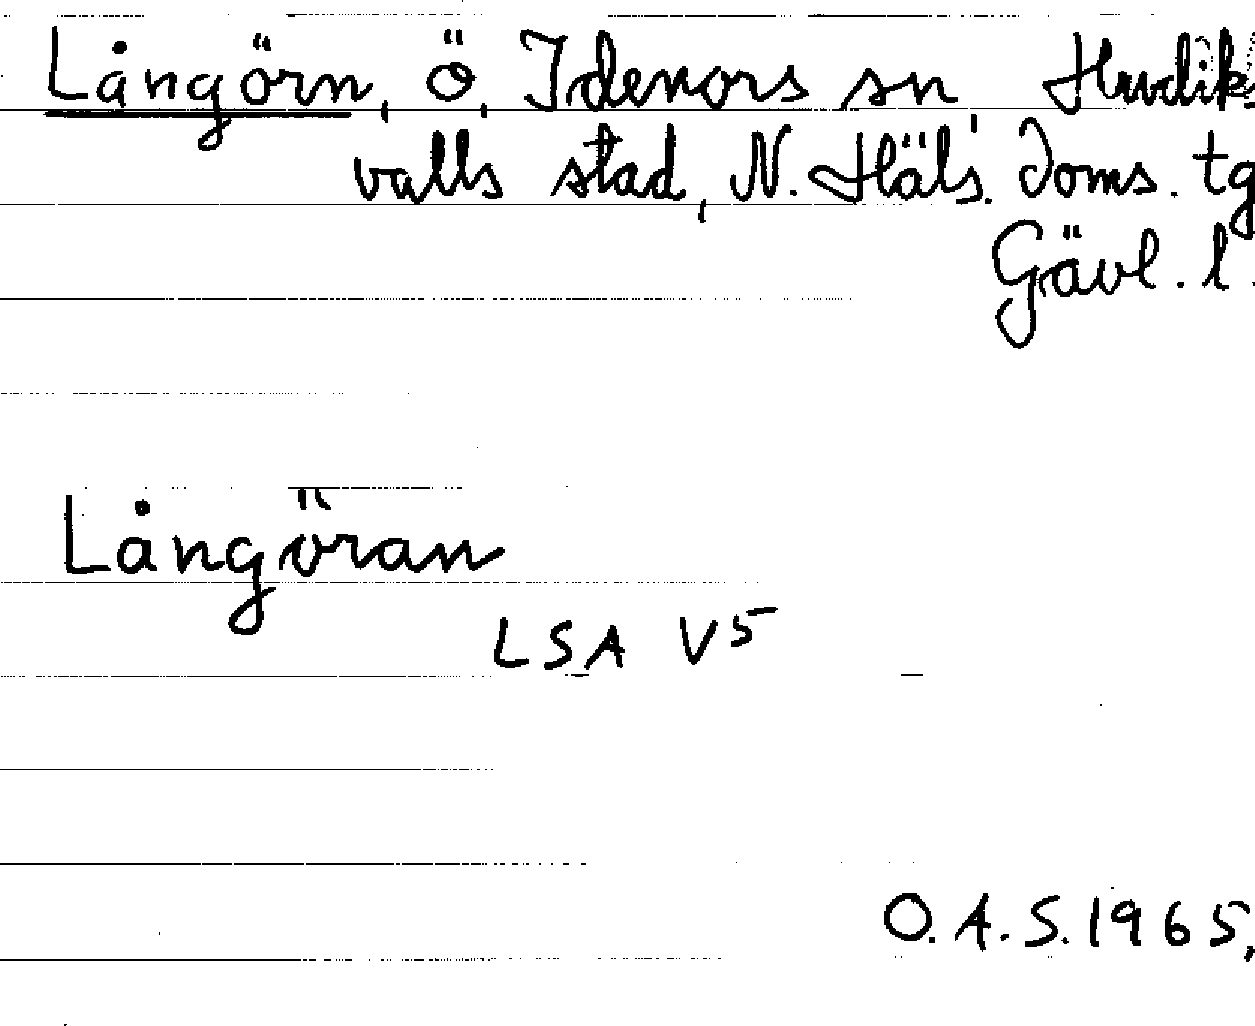 Långörn, ö, Idenors sn, Hudiks
valls stad, N. Häls. doms. tg
Gävl. l.
Långöran
LSA V5
O.A.S. 1965,